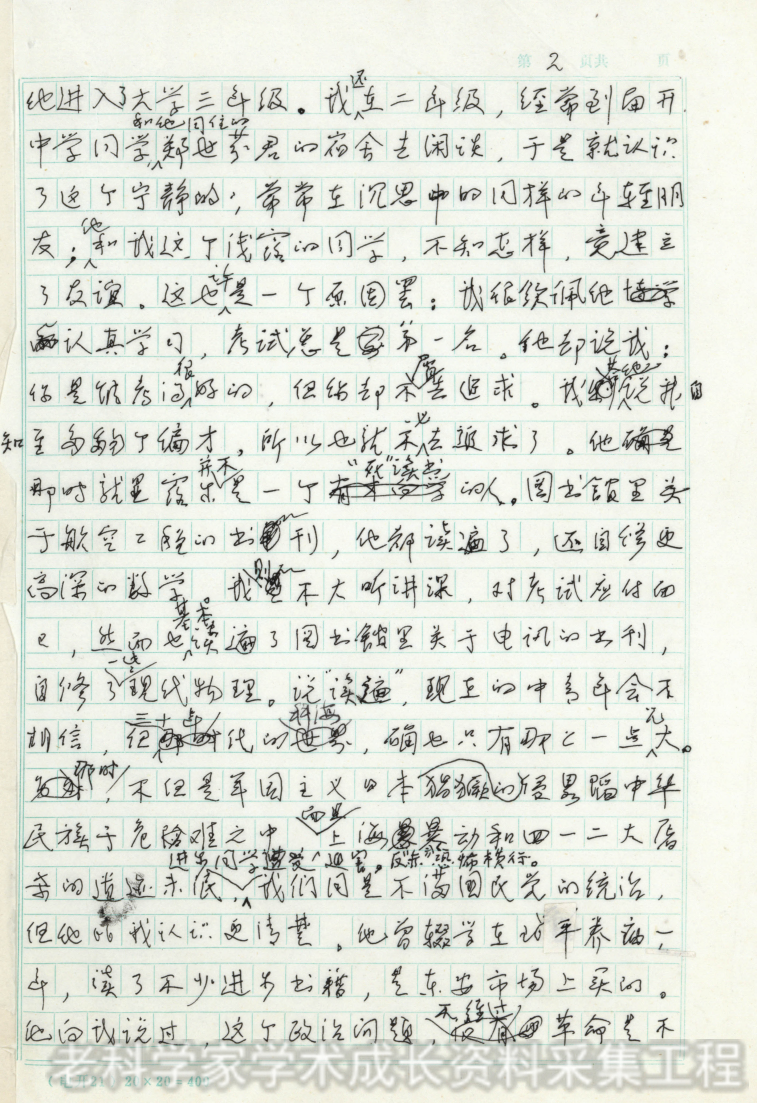 第 2 页共 页
他进入了大学三年级。我还在二年级，经常到届开
中学同学和他同住的郑世芬君的宿舍去闲谈，于是就认识
了这个宁静的，常常在沉思中的同样的年轻朋
友；他和我这个浅露的同学，不知怎样，竟建立
了友谊。这也许是一个原因罢：我很钦佩他
认真学习，考试总是第一名。他却说我：
你是能考得很好的，但你却不屑去追求。我说我自
知至多剩个偏才，所以也就不必去追求了。他
那时就显露并不是一个“死”读书的人。图书馆里关
于航空工程的书刊，他都读遍了，还自修更
高深的数学。我则不大听讲课，对考试应付而
已，然而也基本读遍了图书馆里关于电讯的书刊，
自修了一些现代物理。说“读遍”，现在的中青年会不
相信，但三十年代的科海，确也只有那么一点儿大。
那时，不但是军国主义日本的侵略蹈中华
民族于危险难之中，而且上海暴动和四一二大屠
杀的遗迹未泯，进步同学遭受迫害。反动恐怖横行。我们同是不满国民党的统治，
但他比我认识更清楚。他曾辍学在北平养病一
年，读了不少进步书籍，是东安市场上买的。
他向我说过，这个政治问题，不经过革命是不
20×20=400
老科学家学术成长资料采集工程